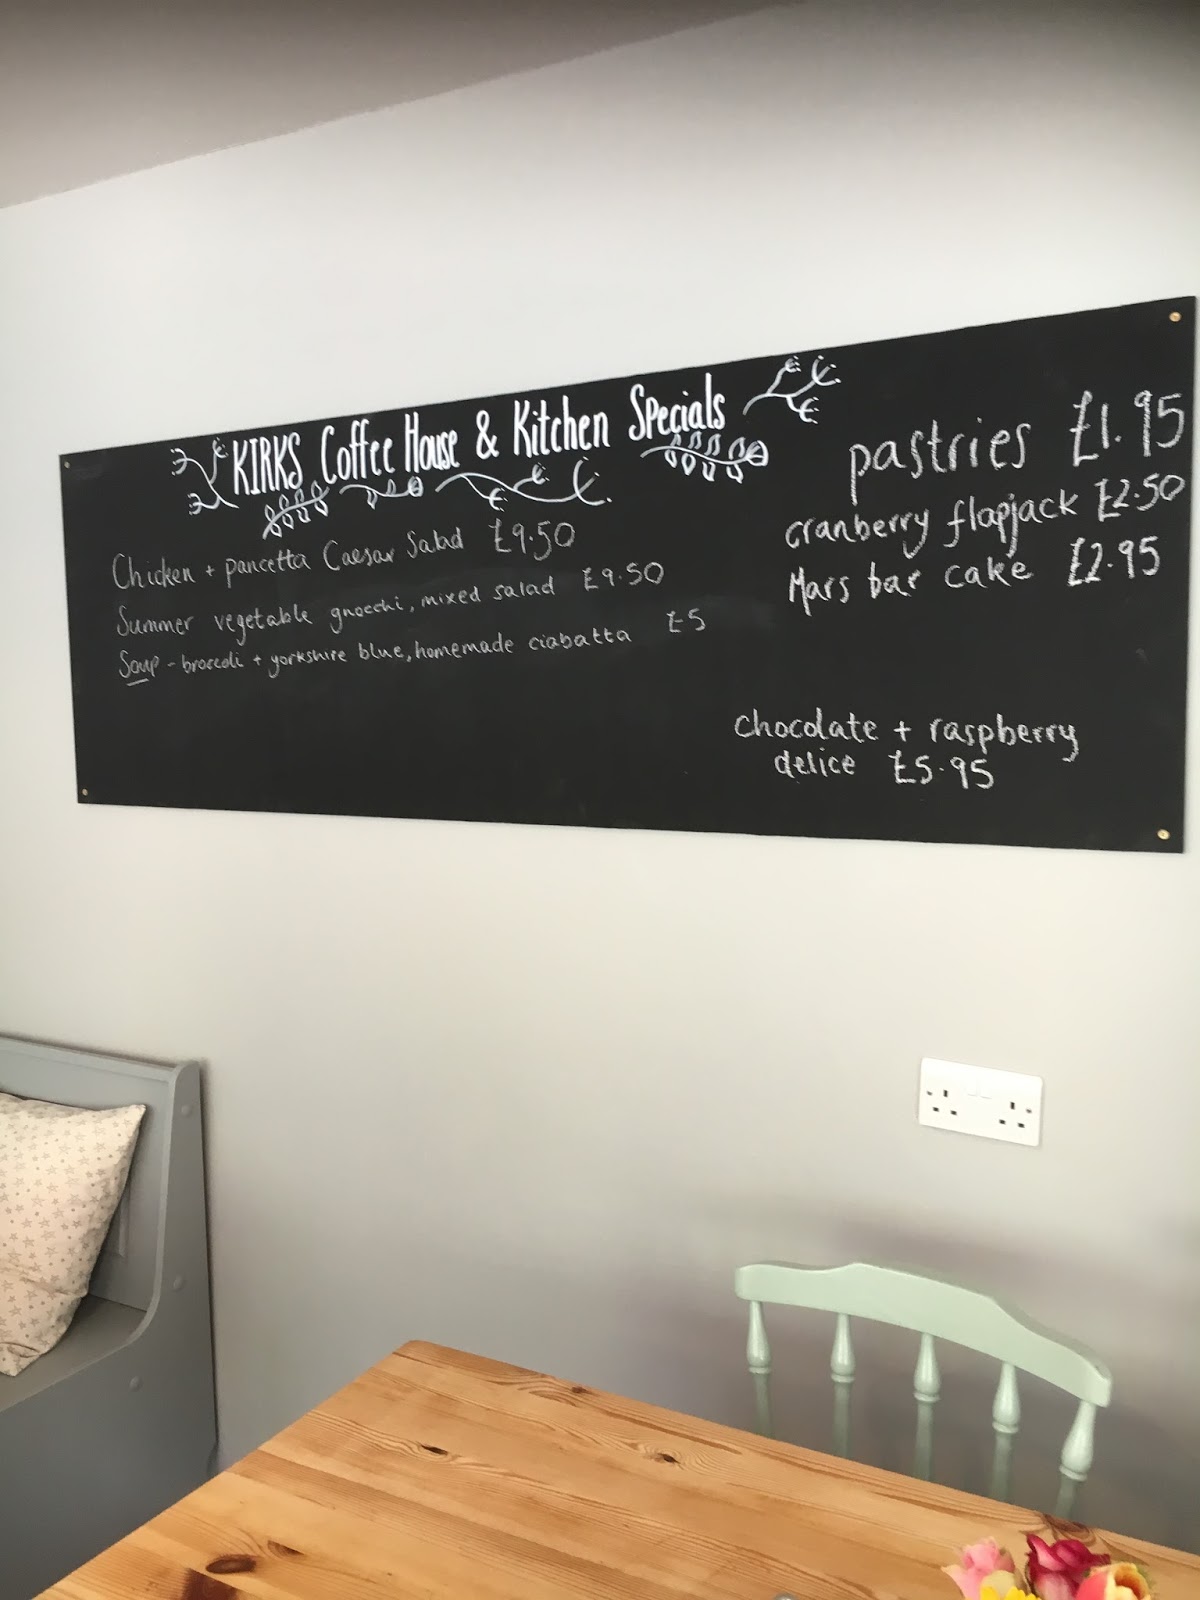 KIRKS Coffee House & Kitchen Specials
Chicken + pancetta Caesar Salad £9.50
Summer vegetable gnocchi, mixed salad £9.50
Soup - broccoli + yorkshire blue, homemade ciabatta £5
pastries £1.95
cranberry flapjack £2.50
Mars bar cake £2.95
chocolate + raspberry
delice £5.95